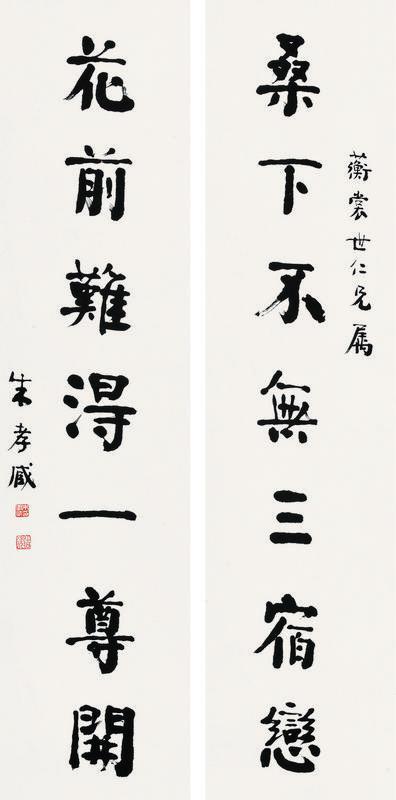 蘅裳世仁兄属
桑下不無三宿戀
花前難得一尊開
朱孝臧